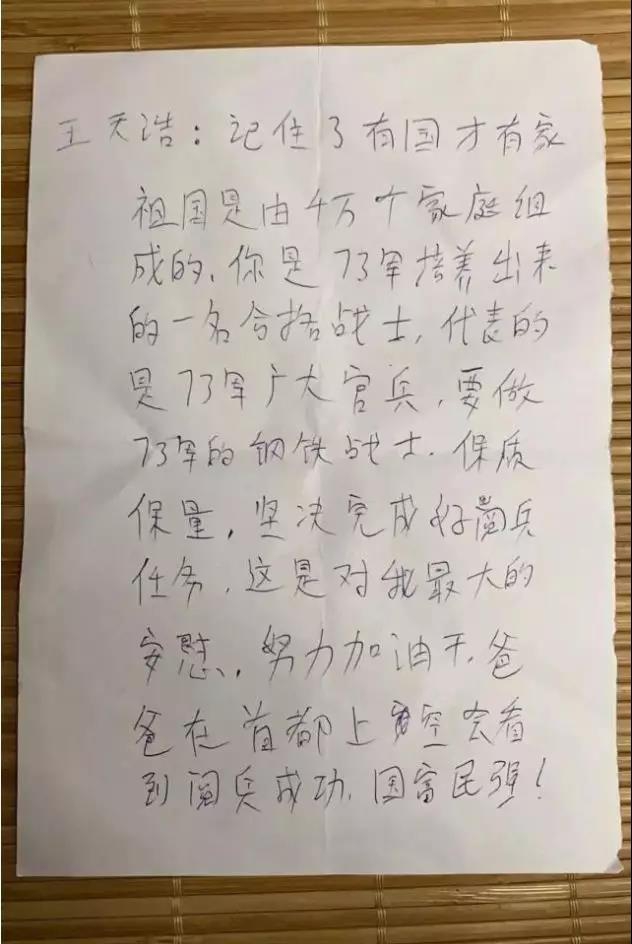 王天浩：记住了有国才有家
祖国是由千万个家庭组
成的，你是73军培养出来
的一名合格战士，代表的
是73军广大官兵，要做
73军的钢铁战士．保质
保量，坚决完成好阅兵
任务，这是对我最大的
安慰，努力加油干，爸
爸在首都上空会看
到阅兵成功，国富民强！